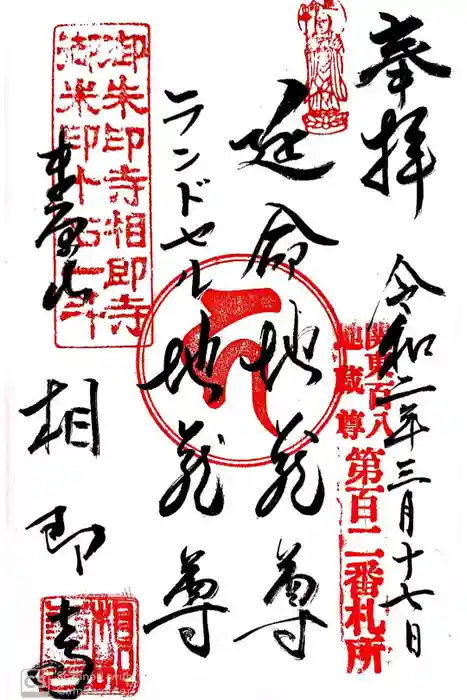 奉拝
令和二年三月十七日
関東百八
地蔵尊
第百二番札所
延命地蔵尊
ランドセル地蔵尊
御朱印寺相即寺
御米印十石一斗
相即寺